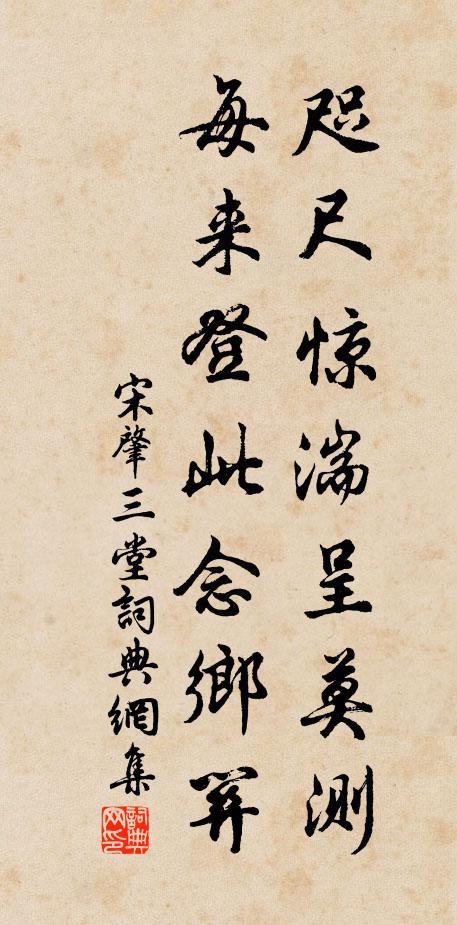 咫尺惊湍呈莫测
每来登此念鄉関
宋肇三堂詞典網集
詞典网印